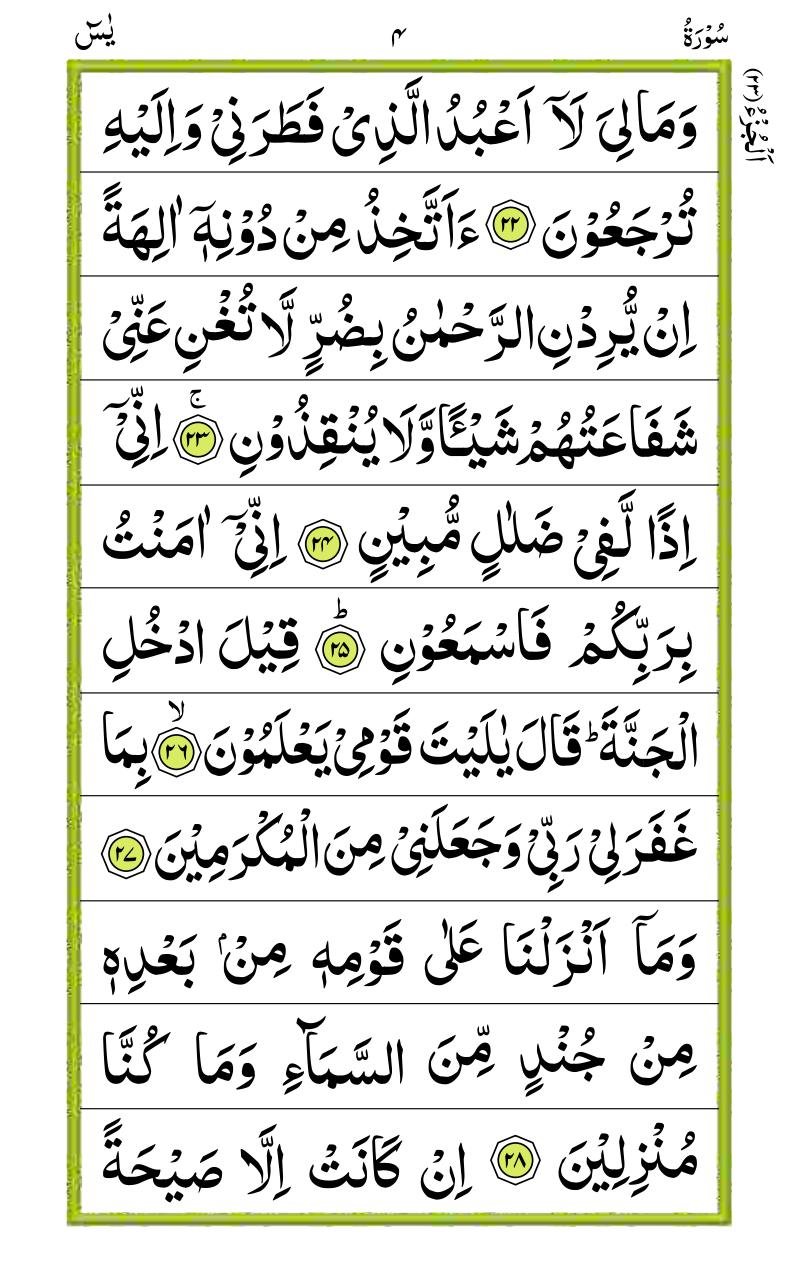 سُوْرَةُ ۴ يٰسٓ
اَلْجُزْءُ (۲۳)
وَمَا لِیَ لَاۤ اَعْبُدُ الَّذِیْ فَطَرَنِیْ وَاِلَیْهِ
تُرْجَعُوْنَ ۲۲ ءَاَتَّخِذُ مِنْ دُوْنِهٖۤ اٰلِهَةً
اِنْ یُّرِدْنِ الرَّحْمٰنُ بِضُرٍّ لَّا تُغْنِ عَنِّیْ
شَفَاعَتُهُمْ شَیْـًٔا وَّلَا یُنْقِذُوْنِ ۲۳ۚ اِنِّیْۤ
اِذًا لَّفِیْ ضَلٰلٍ مُّبِیْنٍ ۲۴ اِنِّیْۤ اٰمَنْتُ
بِرَبِّكُمْ فَاسْمَعُوْنِ ۲۵ؕ قِیْلَ ادْخُلِ
الْجَنَّةَ ؕ قَالَ یٰلَیْتَ قَوْمِیْ یَعْلَمُوْنَ ۲۶ۙ بِمَا
غَفَرَ لِیْ رَبِّیْ وَجَعَلَنِیْ مِنَ الْمُكْرَمِیْنَ ۲۷
وَمَاۤ اَنْزَلْنَا عَلٰی قَوْمِهٖ مِنْۢ بَعْدِهٖ
مِنْ جُنْدٍ مِّنَ السَّمَآءِ وَمَا كُنَّا
مُنْزِلِیْنَ ۲۸ اِنْ كَانَتْ اِلَّا صَیْحَةً